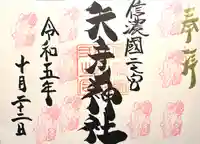 奉拝
信濃國二之宮
矢彦神社
令和五年
十月二十三日